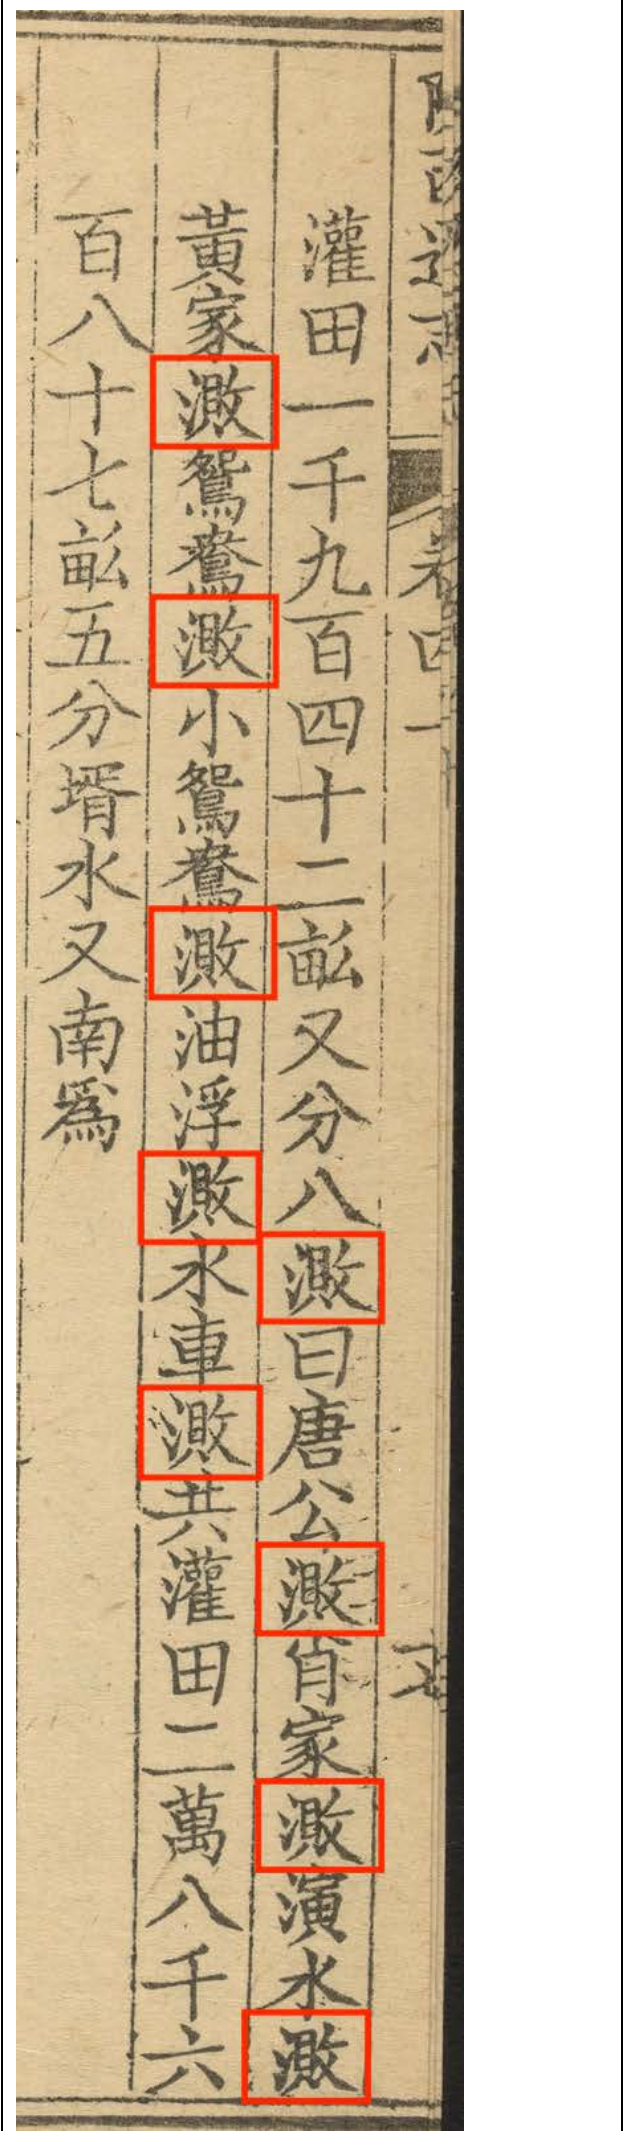 灌田一千九百四十二畝又分八澉曰唐公澉肖家澉演水澉
黃家澉鴛鴦澉小鴛鴦澉油浮澉水車澉共灌田二萬八千六
百八十七畝五分壻水又南爲